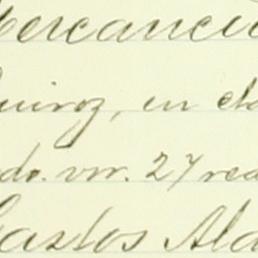 Mercancí
Quiroz, en cta
do. vvr. 27 rea
Gastos Ald